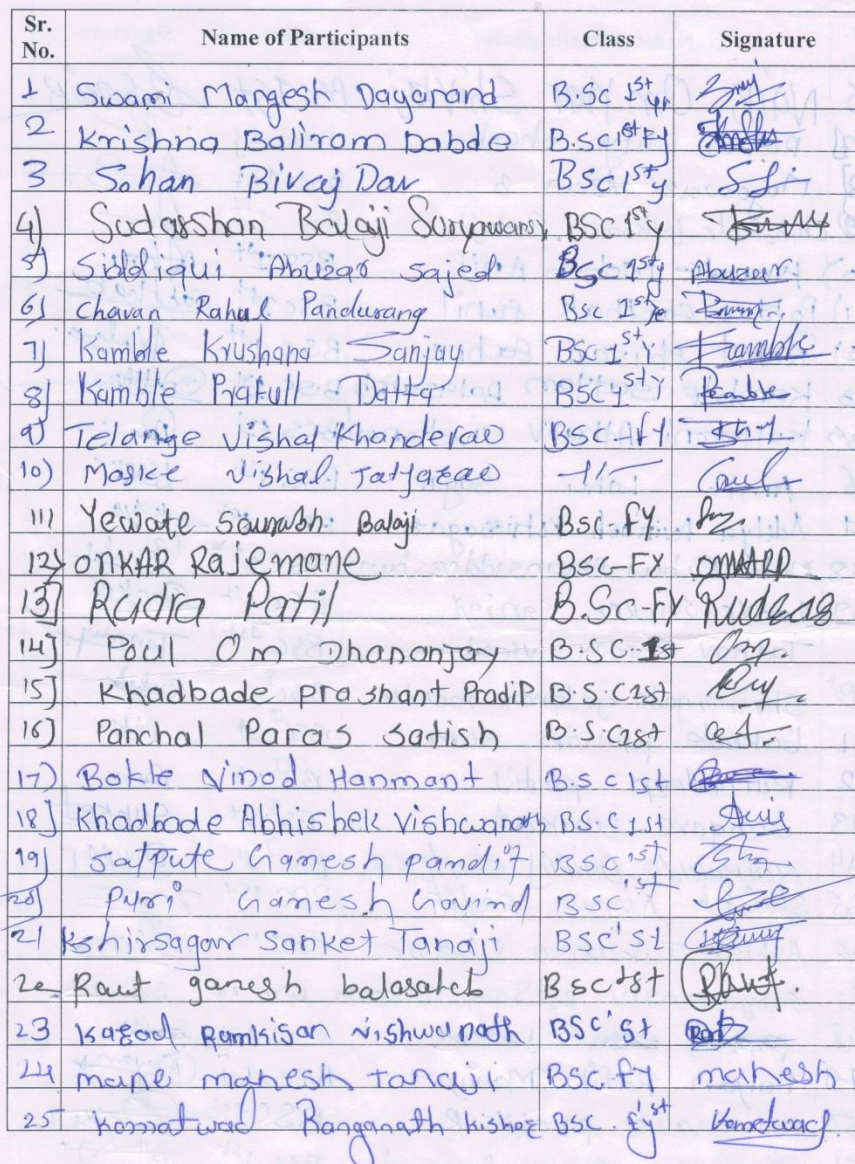 Sr. No. Name of Participants Class Signature
1 Swami Mangesh Dayanand B.SC 1st yr
2 Krishna Balirom Dabde B.sc 1st Fy
3 Sohan Bivaj Dav BSC 1st y
4) Sudarshan Balaji Suryawansi BSC 1st y
5) Siddiqui Abuzar Sajed BSC 1st y Abuzeur
6) Chavan Rahul Pandurang Bsc 1st ye
7) Kamble Krushana Sanjay BSC 1st y Kamble
8) Kamble Prafull Datta BSC 1st y
9) Telange Vishal Khanderao BSC
10) Vishal -11-
11) Yewate Saurabh Balaji Bsc-FY
12) ONKAR Rajemane BSC-FY ONKARR
13] Rudra Patil B.Sc-FY
14] Paul Om Dhananjay B.S.C 1st
15] Khadbade prashant PradiP B.S.C 1st
16) Panchal Paras Satish B.S.C 1st
17) Bokte Vinod Hanmant B.s.c 1st
18] Khadbade Abhishek Vishwanath B.s.c 1st
19] Satpute Ganesh pandit B.s.c 1st
20) Puri Ganesh Govind B.SC 1st
21 Kshirsagar Sanket Tanaji BSC 1st
22 Raut ganesh balasaheb Bsc 1st Raut.
23 Kagad Ramkisan vishwanath BSC 1st
24 mane mahesh tanaji BSC.fy mahesh
25 Komatwad Ranganath kishor BSC. fy 1st